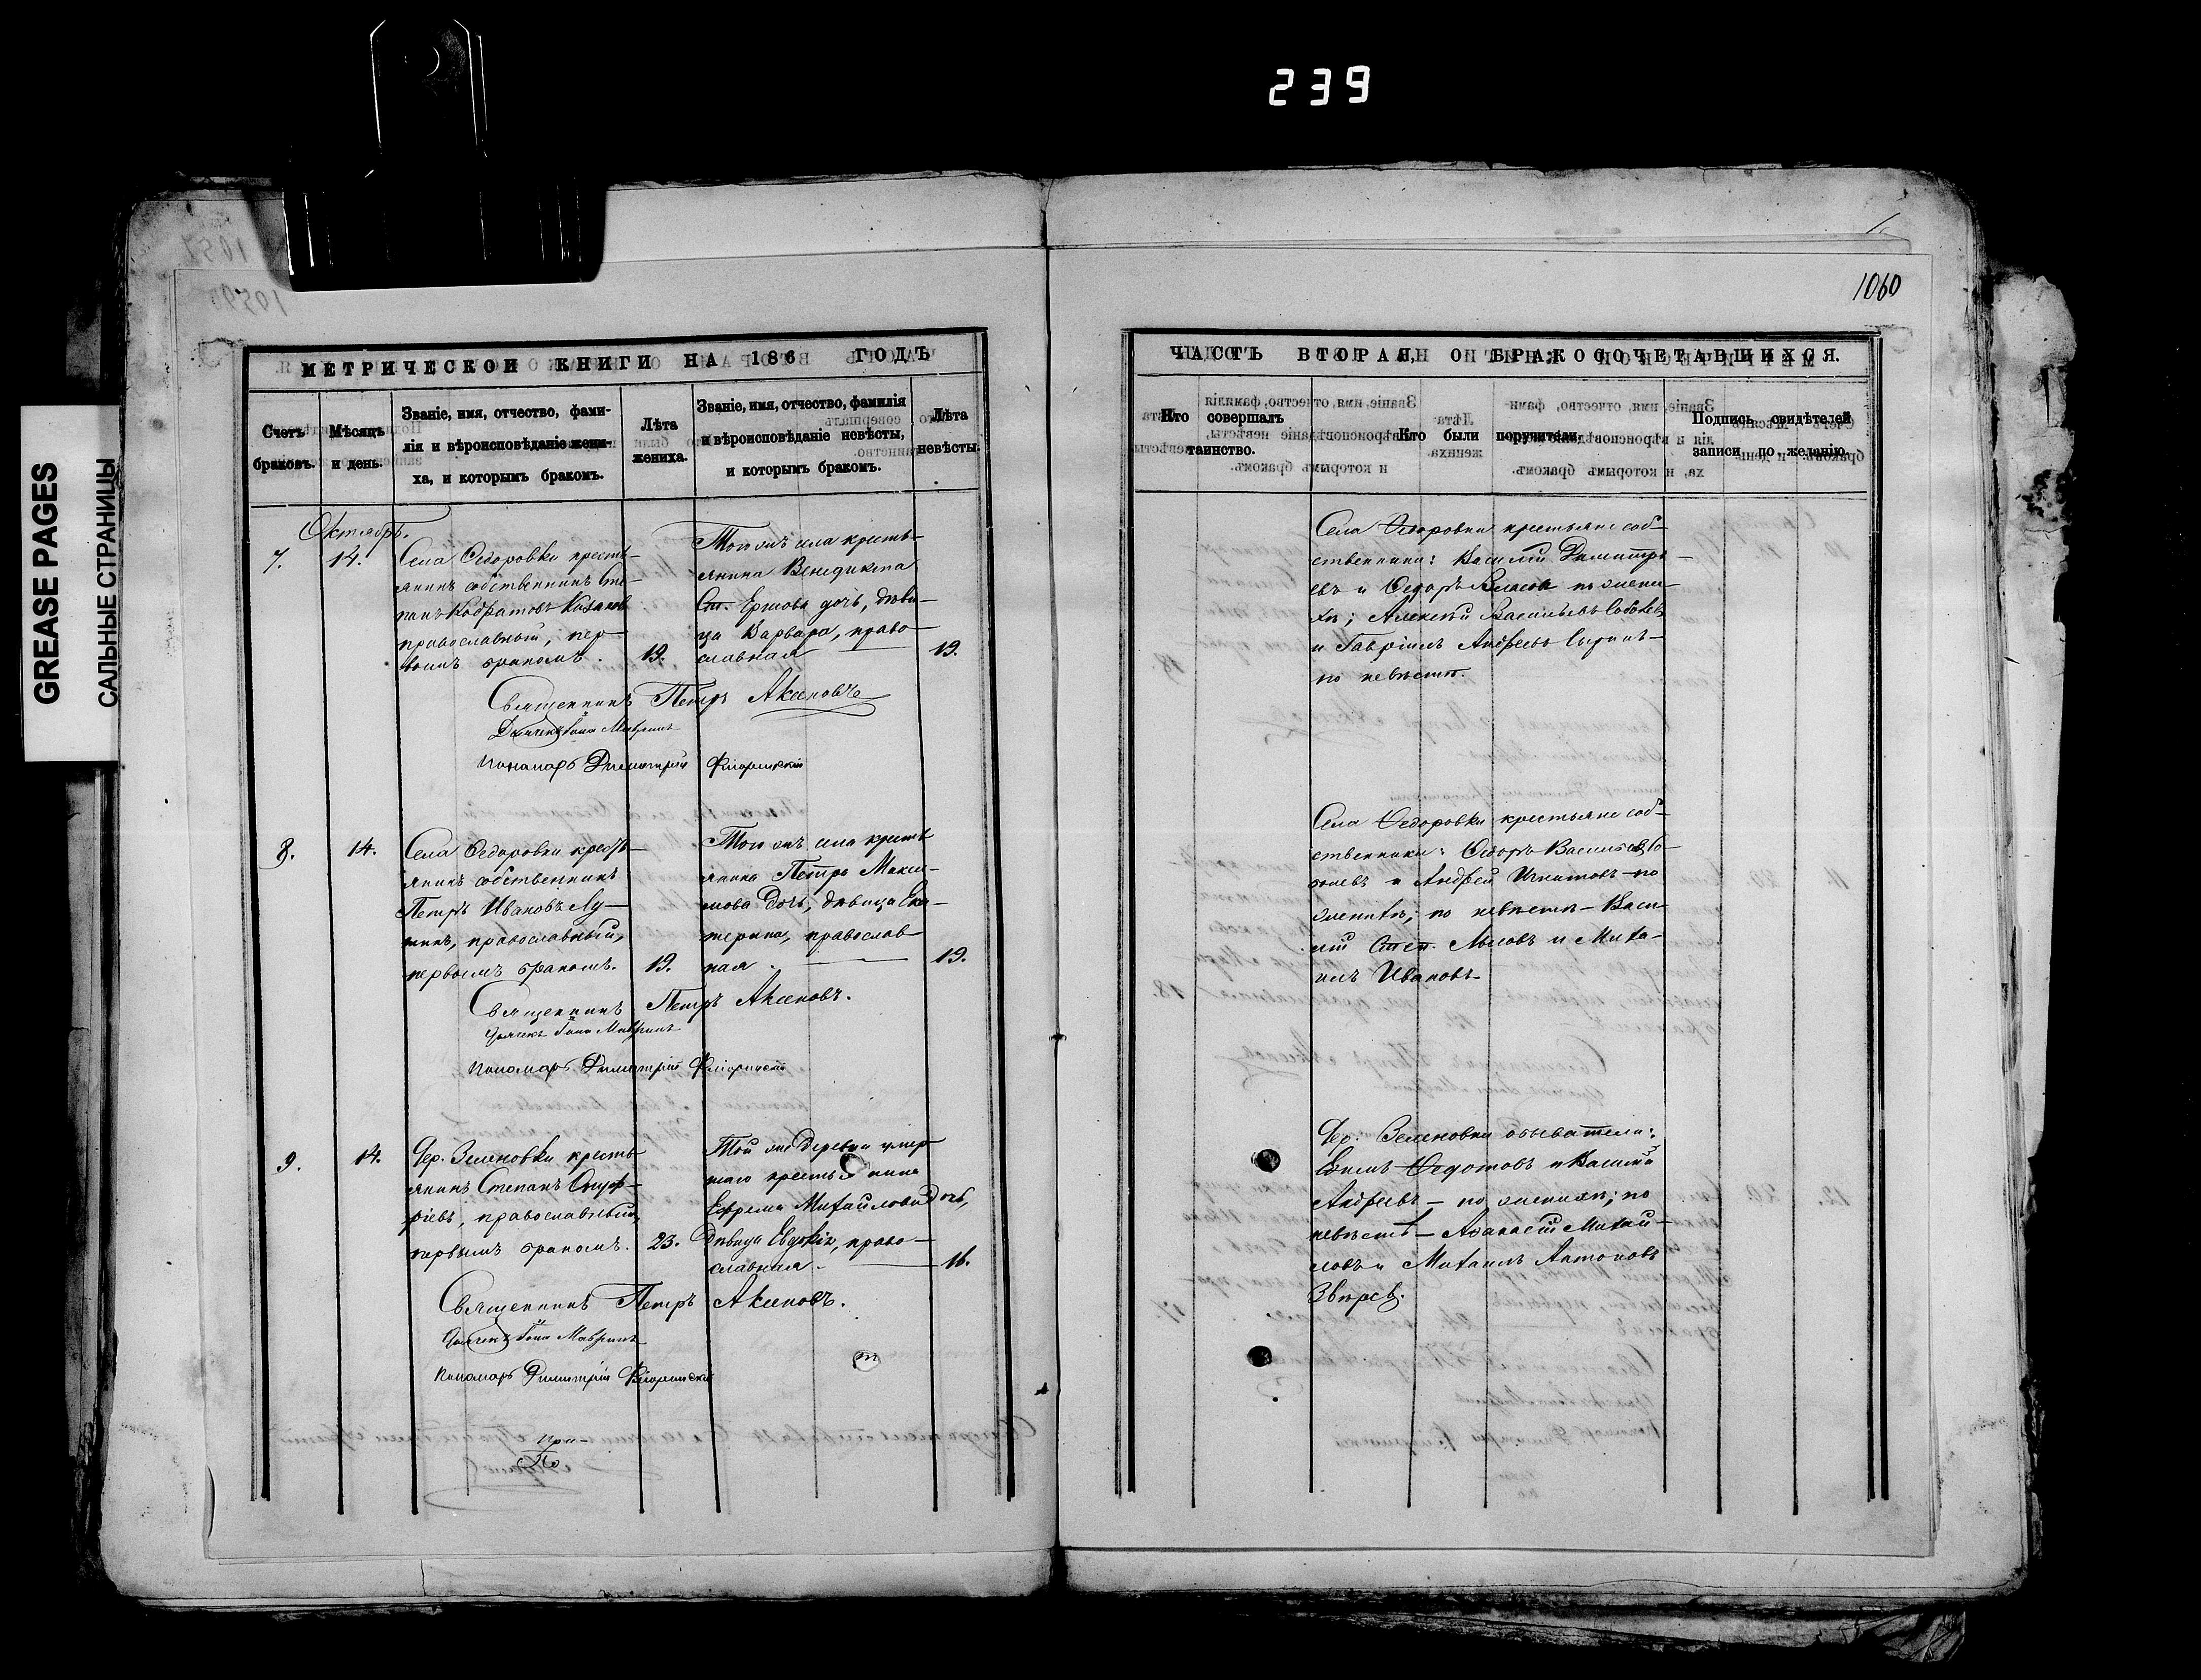 239
GREASE PAGES
САЛЬНЫЕ СТРАНИЦЫ
1060
МЕТРИЧЕСКОЙ КНИГИ НА 186 ГОДЪ
Счетъ браковъ.
Мѣсяцъ и день.
Званіе, имя, отчество, фами-
лія и вѣроисповѣданіе жени-
ха, и которымъ бракомъ.
Лѣта жениха.
Званіе, имя, отчество, фамилія
и вѣроисповѣданіе невѣсты,
и которымъ бракомъ.
Лѣта невѣсты.
Октябрь.
7.
14.
Села Ѳедоровки кресть-
янинъ собственникъ Сте-
панъ Кодратовъ Казаковъ
православный, пер-
вымъ бракомъ.
19.
Того жъ села кресть-
янина Венедикта
Ст. Ершова дочь, дѣви-
ца Варвара, право-
славная
19.
Священникъ Петръ Аксеновъ
Дьячекъ Іона Мавринъ
Пономарь Димитрій Флоринскій
8.
14.
Села Ѳедоровки кресть-
янинъ собственникъ
Петръ Ивановъ Лу-
тинъ, православный,
первымъ бракомъ.
19.
Того жъ села кресть
янина Петра Макси-
мова дочь, дѣвица Ека-
терина, православ
ная.
19.
Священникъ Петръ Аксеновъ.
Дьячекъ Іона Мавринъ
Пономарь Димитрій Флоринскій
9.
14.
Дер. Зеленовки кресть
янинъ Степанъ Онуф-
ріевъ, православный,
первымъ бракомъ.
23.
Той же деревни умер
шаго крестьянина
Ефрема Михайлова дочь,
дѣвица Евдокія, право-
славная.
16.
Священникъ Петръ Аксеновъ.
Дьячекъ Іона Мавринъ
Пономарь Димитрій Флоринскій
ЧАСТЬ ВТОРАЯ, О БРАКОСОЧЕТАВШИХСЯ.
Кто совершалъ таинство.
Кто были поручители.
Подпись свидѣтелей
записи по желанію.
Села Ѳедоровки крестьяне соб-
ственники: Василій Димитрі-
евъ и Ѳедоръ Власовъ по жени-
хѣ; Алексѣй Васильевъ
и Гавріилъ Андреевъ
по невѣстѣ.
Села Ѳедоровки крестьяне соб-
ственники: Ѳедоръ Васильевъ
и Андрей Игнатовъ по
женихѣ; по невѣстѣ - Васи-
лій Степ. и Миха-
илъ Ивановъ
Дер. Зеленовки обыватели:
Ѳедотовъ и Василій
Андреевъ - по женихѣ; по
невѣстѣ - Аѳанасій Михай-
ловъ и Михаилъ Антоновъ
Звѣревъ.